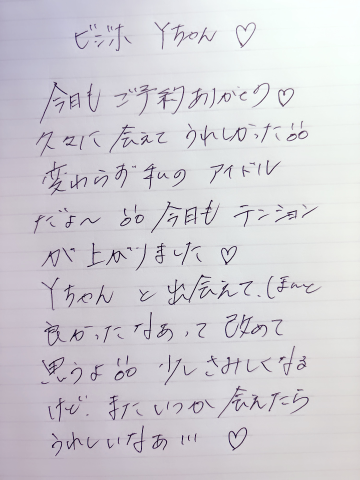 ビジホ Yちゃん ♡
今日も ご予約ありがとう♡
久々に 会えて うれしかった
変わらず 私の アイドル
だよ〜 今日も テンション
が 上がりました ♡
Yちゃん と 出会えて、ほんと
良かったなあって 改めて
思うよ 少し さみしくなる
けど、またいつか 会えたら
うれしいなぁ ♡